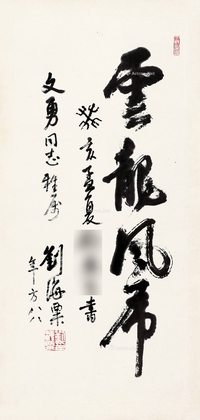 雲龍風虎
癸亥孟夏
書
文勇同志雅屬
劉海粟
年方八八